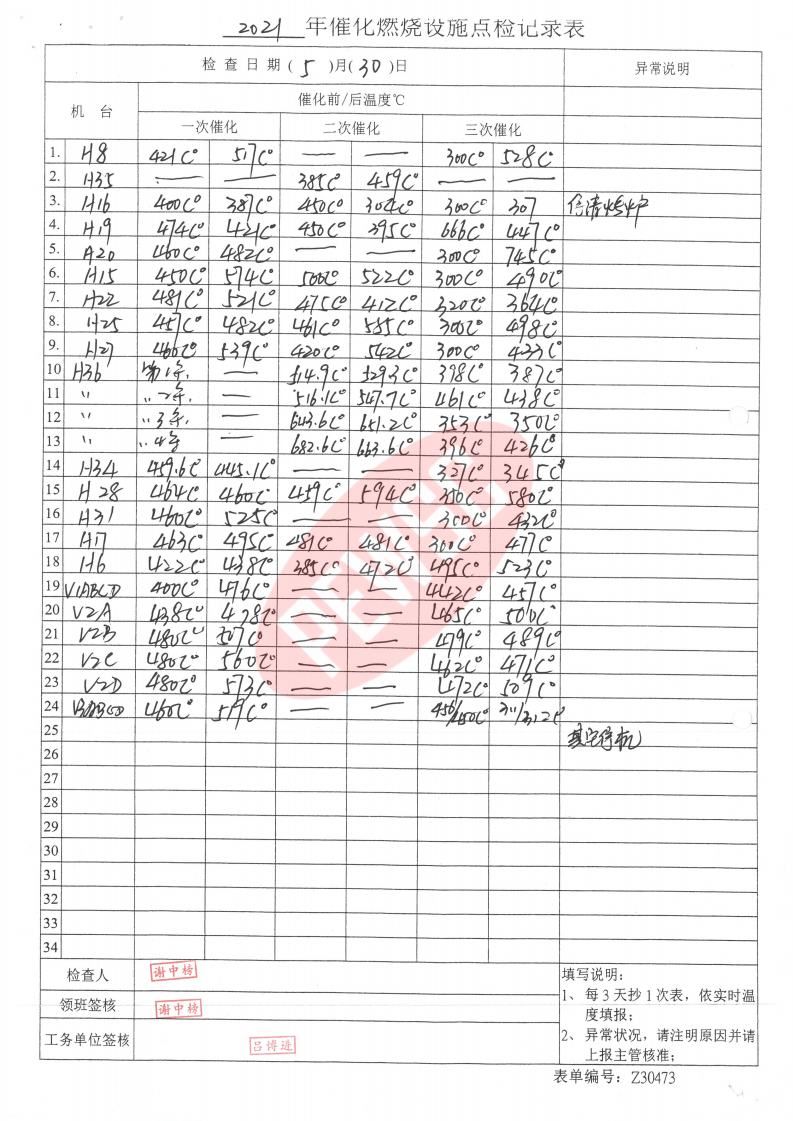 2021 年催化燃烧设施点检记录表
检查日期(5)月(30)日 异常说明
机台 催化前/后温度℃
一次催化 二次催化 三次催化
1. H8 421C° 517C° — — 300C° 528C°
2. H35 — — 385C° 459C°
3. H16 400C° 387C° 450C° 304C° 300C° 307
4. H19 474C° 421C° 450C° 395C° 666C° 447C°
5. A20 460C° 482C° — — 300C° 745C°
6. H15 450C° 574C° 500C° 522C° 300C° 490C°
7. H22 481C° 521C° 475C° 412C° 320C° 364C°
8. H25 457C° 482C° 461C° 555C° 300C° 498C°
9. H27 460C° 539C° 420C° 542C° 300C° 433C°
10 H36 第1条 — 514.9C° 529.3C° 398C° 387C°
11 〃 〃2条 — 516.1C° 547.7C° 461C° 438C°
12 〃 〃3条 — 643.6C° 651.2C° 353C° 350C°
13 〃 〃4条 — 682.6C° 663.6C° 396C° 426C°
14 H34 459.6C° 445.1C° — — 327C° 345C°
15 H28 464C° 460C° 459C° 594C° 350C° 580C°
16 H31 460C° 525C° — — 300C° 432C°
17 H17 463C° 495C° 481C° 481C° 300C° 477C°
18 H6 422C° 438C° 385C° 472C° 495C° 523C°
19 V1ABCD 400C° 476C° — — 442C° 457C°
20 V2A 438C° 478C° — — 465C° 500C°
21 V2B 480C° 507C° — — 479C° 489C°
22 V2C 480C° 560C° — — 462C° 471C°
23 V2D 480C° 573C° — — 472C° 509C°
24 460C° 519C° — — 450/450C° 311/312C°
25
26
27
28
29
30
31
32
33
34
检查人 谢中榜
领班签核 谢中榜
工务单位签核 吕博进
填写说明:
1、每3天抄1次表，依实时温
度填报;
2、异常状况，请注明原因并请
上报主管核准;
表单编号: Z30473